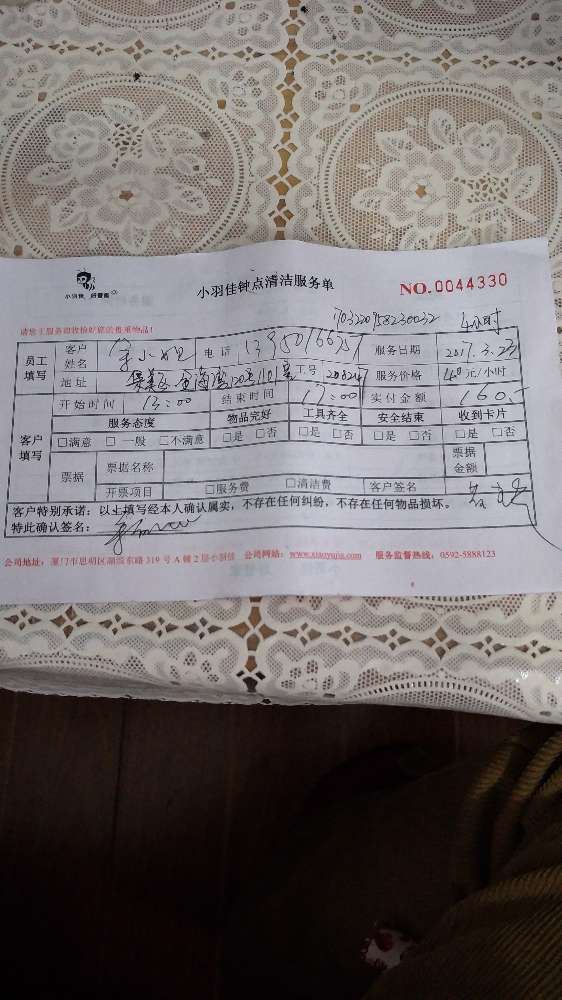 小羽佳 好管家
小羽佳钟点清洁服务单
NO.0044330
4小时
请您于服务前收检好您的贵重物品!
员工填写 客户姓名 电话 服务日期 2017.3.23
地址 工号 服务价格 40元/小时
客户填写 开始时间 13:00 结束时间 17:00 实付金额 160.-
服务态度 物品完好 工具齐全 安全结束 收到卡片
□满意 □一般 □不满意 □是 □否 □是 □否 □是 □否 □是 □否
票据 票据名称 票据金额
开票项目 □服务费 □清洁费 客户签名
客户特别承诺：以上填写经本人确认属实，不存在任何纠纷，不存在任何物品损坏。
特此确认签名：
公司地址：厦门市思明区湖滨东路319号A幢2层小羽佳 公司网站：www.xiaoyujia.com 服务监督热线：0592-5888123